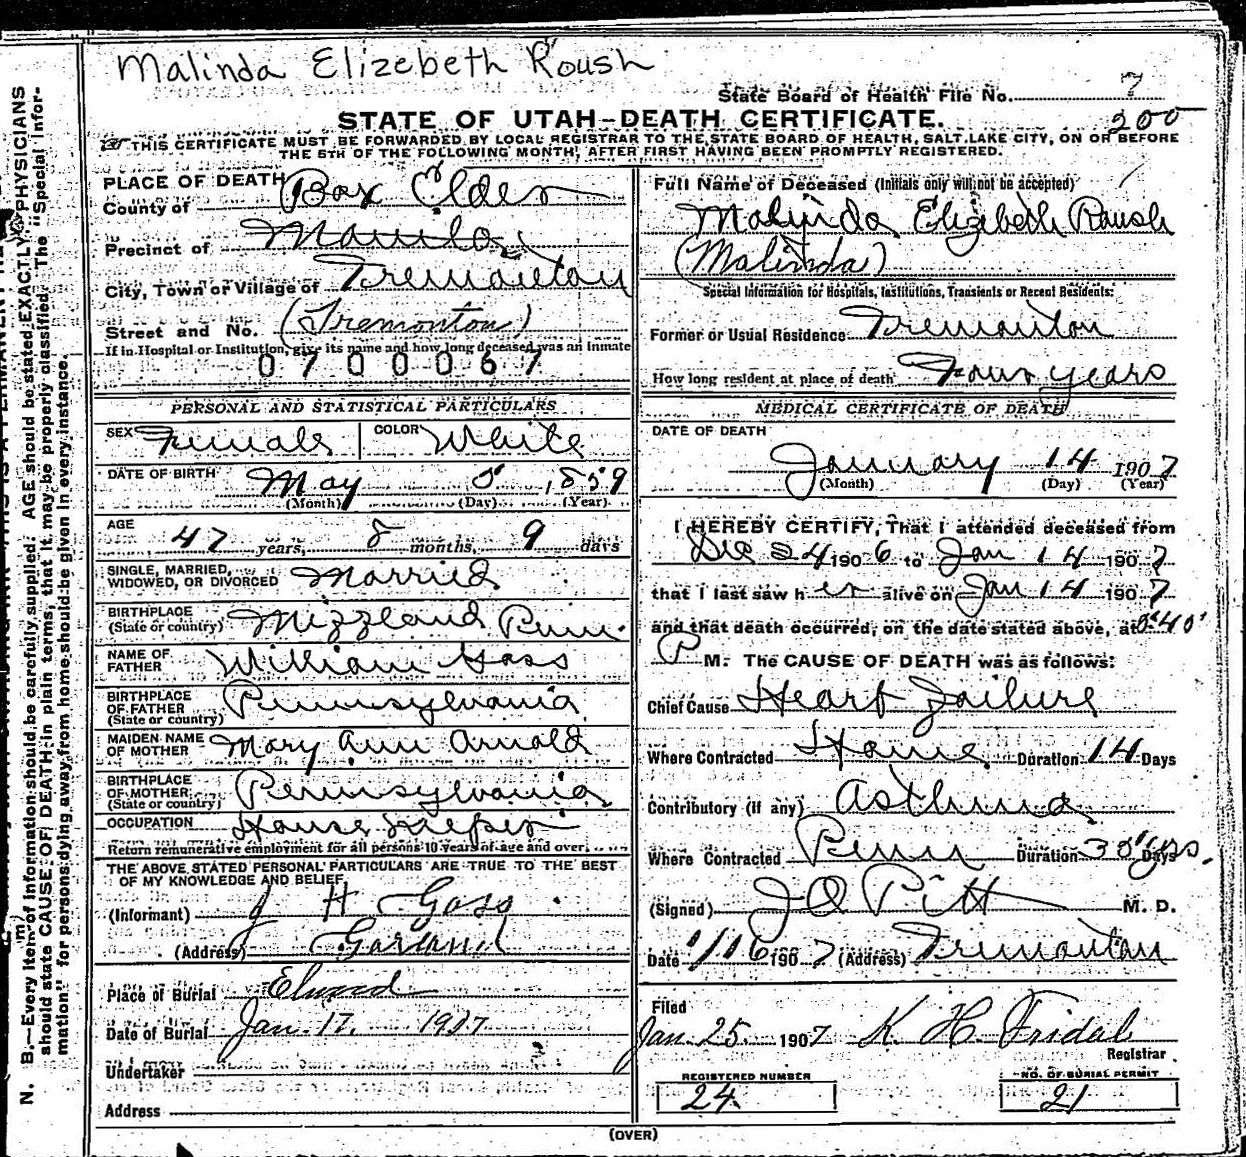 Malinda Elizebeth Roush
State Board of Health File No. 7
STATE OF UTAH–DEATH CERTIFICATE. 200
THIS CERTIFICATE MUST BE FORWARDED BY LOCAL REGISTRAR TO THE STATE BOARD OF HEALTH, SALT LAKE CITY, ON OR BEFORE
THE 5TH OF THE FOLLOWING MONTH, AFTER FIRST HAVING BEEN PROMPTLY REGISTERED.
PLACE OF DEATH
County of Box Elder
Precinct of Manila
City, Town or Village of Tremonton
Street and No. (Tremonton)
If in Hospital or Institution, give its name and how long deceased was an inmate
0700067
PERSONAL AND STATISTICAL PARTICULARS
SEX Female COLOR White
DATE OF BIRTH May 5 1859
(Month) (Day) (Year)
AGE 47 years, 8 months, 9 days
SINGLE, MARRIED,
WIDOWED, OR DIVORCED Married
BIRTHPLACE
(State or country) Mizzland Penn.
NAME OF
FATHER William Gass
BIRTHPLACE
OF FATHER
(State or country) Pennsylvania
MAIDEN NAME
OF MOTHER Mary Ann Arnold
BIRTHPLACE
OF MOTHER
(State or country) Pennsylvania
OCCUPATION House Keeper
Return remunerative employment for all persons 10 years of age and over
THE ABOVE STATED PERSONAL PARTICULARS ARE TRUE TO THE BEST
OF MY KNOWLEDGE AND BELIEF
(Informant) J H Gass
(Address) Garland
Place of Burial Elwood
Date of Burial Jan. 17. 1907
Undertaker
Address
Full Name of Deceased (Initials only will not be accepted)
Malinda Elizibeth Raush
(Malinda)
Special Information for Hospitals, Institutions, Transients or Recent Residents:
Former or Usual Residence Tremonton
How long resident at place of death Four years
MEDICAL CERTIFICATE OF DEATH
DATE OF DEATH
January 14 1907
(Month) (Day) (Year)
I HEREBY CERTIFY, That I attended deceased from
Dec 24 1906 to Jan 14 1907
that I last saw her alive on Jan 14 1907
and that death occurred, on the date stated above, at
P M. The CAUSE OF DEATH was as follows:
Chief Cause Heart Failure
Where Contracted Home Duration 14 Days
Contributory (if any) Asthma
Where Contracted Penn Duration 30 yrs. Days
(Signed) J O Pitt M. D.
Date 1/16 1907 (Address) Tremonton
Filed
Jan. 25. 1907 K. H. Fridal
Registrar
REGISTERED NUMBER
24
NO. OF BURIAL PERMIT
21
(OVER)
N. B.—Every item of information should be carefully supplied. AGE should be stated EXACTLY. PHYSICIANS
should state CAUSE OF DEATH in plain terms, that it may be properly classified. The "Special Infor-
mation" for persons dying away from home should be given in every instance.